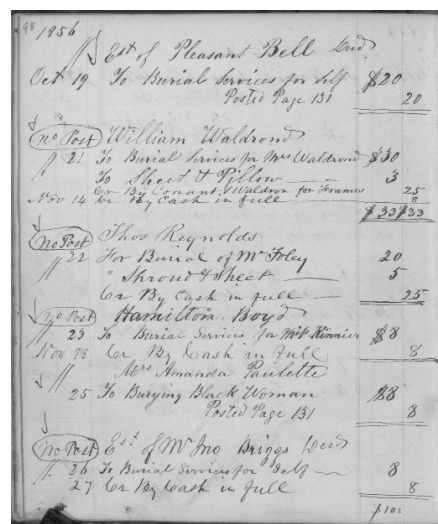 98 1856
Est of Pleasant Bell Decd
Oct 19 To Burial Services for Self $20
Posted Page 131 20
no Post William Waldrond
" 21 To Burial Services for Mrs Waldrond $30
To Sheet & Pillow 3
Cr By Conant Waldron for Frames 25
Nov 14 Cr By Cash in full 8
$33 $33
No Post Thos Reynolds
" 22 For Burial of Mr Foley 20
" Shroud & Sheet 5
Cr By Cash in full 25
no Post Hamilton Boyd
" 23 To Burial Services for Kinnier $8
Nov 28 Cr By Cash in full 8
" Mrs Amanda Paulette
25 To Burying Black Woman $8
Posted Page 131 8
No Post Est of Mr Jno Briggs Decd
" 26 To Burial Services for Self 8
27 Cr By Cash in full 8